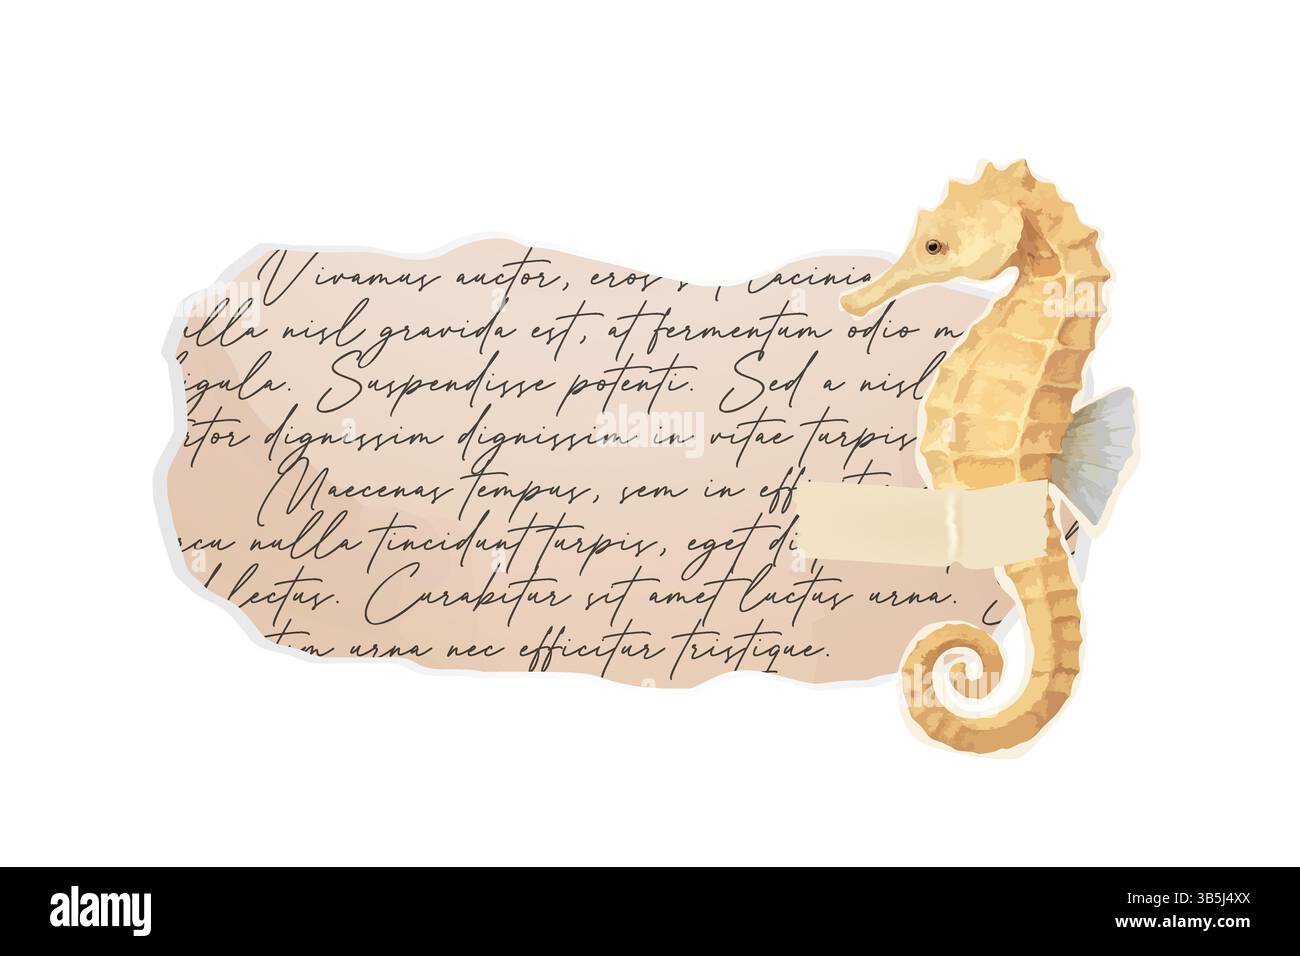 Vivamus auctor, eros s lacinia
ulla nisl gravida est, at fermentum odio m
igula. Suspendisse potenti. Sed a nisl
rtor dignissim dignissim in vitae turpis
Maecenas tempus, sem in eff
rcu nulla tincidunt turpis, eget di
lectus. Curabitur sit amet luctus urna.
urna nec efficitur tristique.
alamy
Image ID: 3B5J4XX
www.alamy.com